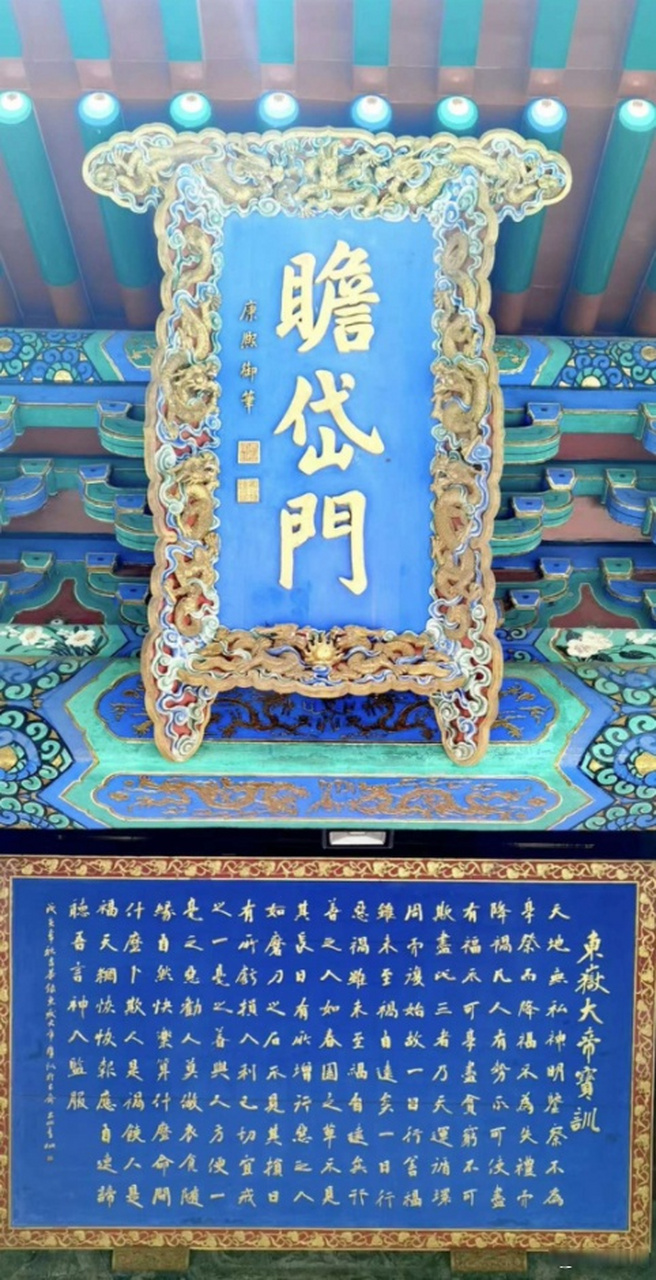 瞻岱門
康熙御筆
東嶽大帝寶訓
天地無私神明鑒察不為
享祭而降福不為失禮而
降禍凡人有勢不可使盡
有福不可享盡貧窮不可
欺盡此三者乃天運循環
周而復始故一日行善福
雖未至禍自遠矣一日行
惡禍雖未至福自遠矣行
善之人如春園之草不見
其長日有所增行惡之人
如磨刀之石不見其損日
有所虧損人利己切宜戒
之一毫之善與人方便一
毫之惡勸人莫做衣食隨
緣自然快樂算什麼命問
什麼卜欺人是禍饒人是
福天網恢恢報應自速諦
聽吾言神人監服